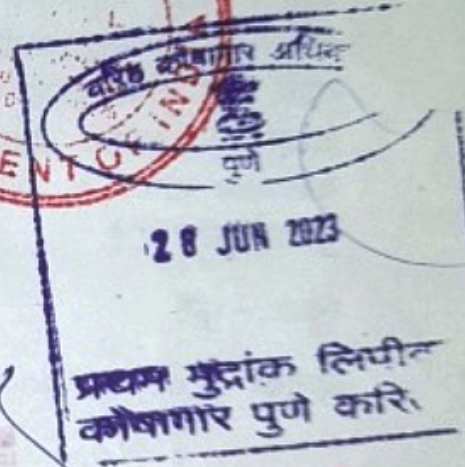 वरिष्ठ कोषागार
पुणे
28 JUN 2023
प्रथम मुद्रांक लिपीक
कोषागार पुणे करि